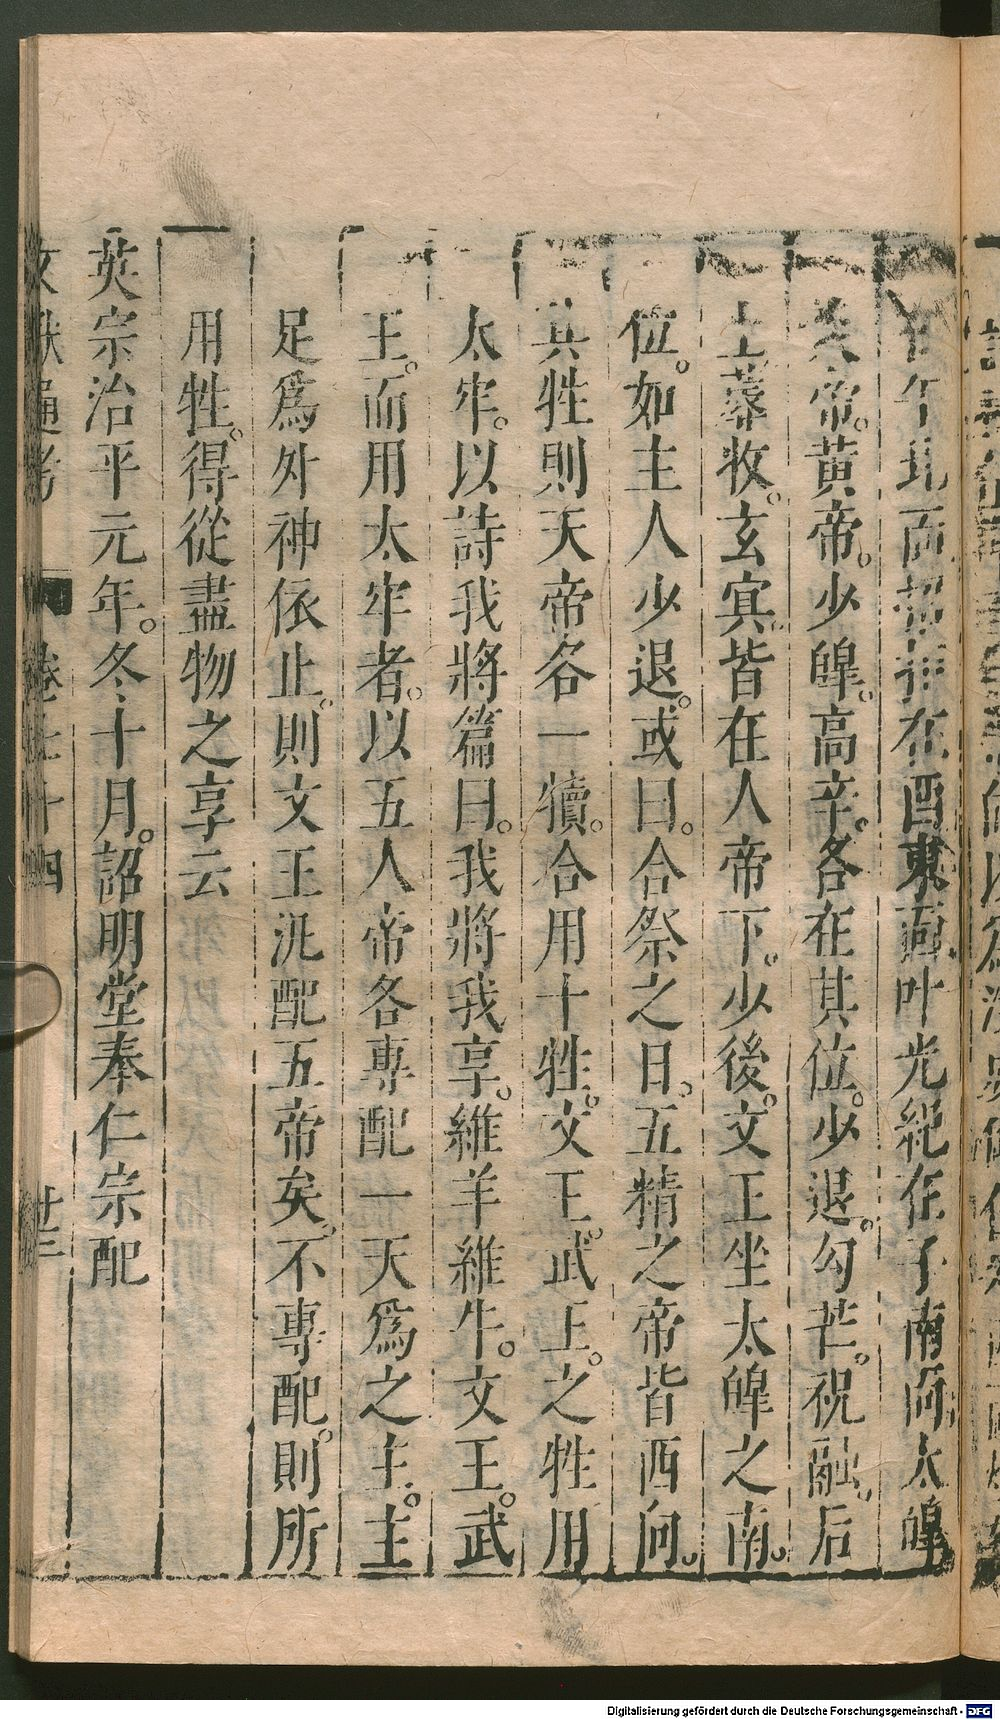 在午北面招拒在酉東面叶光紀在子南向太皥
炎帝。黄帝。少皥。高辛。各在其位。少退。勾芒。祝融。后
土蓐收。玄冥。皆在人帝下。少後。文王坐太皥之南。
位。如主人少退。或曰。合祭之日。五精之帝皆西向。
其牲則天帝各一犢。合用十牲。文王。武王。之牲用
太牢。以詩我將篇曰。我將我享。維羊維牛。文王。武
王。而用太牢者。以五人帝各專配一天爲之主。主
足爲外神依止。則文王汎配五帝矣。不專配。則所
用牲。得從盡物之享云
英宗治平元年。冬十月。詔明堂奉仁宗配
文獻通考
卷七十四
廿三
Digitalisierung gefördert durch die Deutsche Forschungsgemeinschaft - DFG